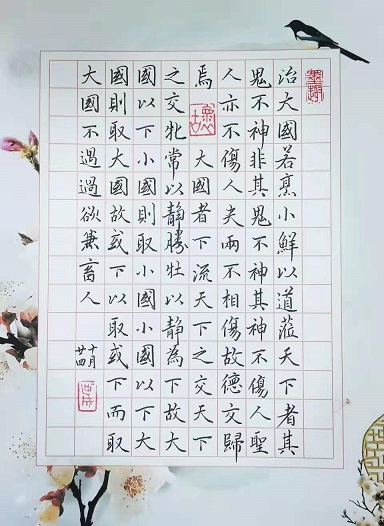 治大國若烹小鮮以道蒞天下者其
鬼不神非其鬼不神其神不傷人聖
人亦不傷人夫兩不相傷故德交歸
焉 大國者下流天下之交天下
之交牝常以靜勝牡以靜為下故大
國以下小國則取小國小國以下大
國則取大國故或下以取或下而取
大國不過過欲兼畜人
十月
廿四